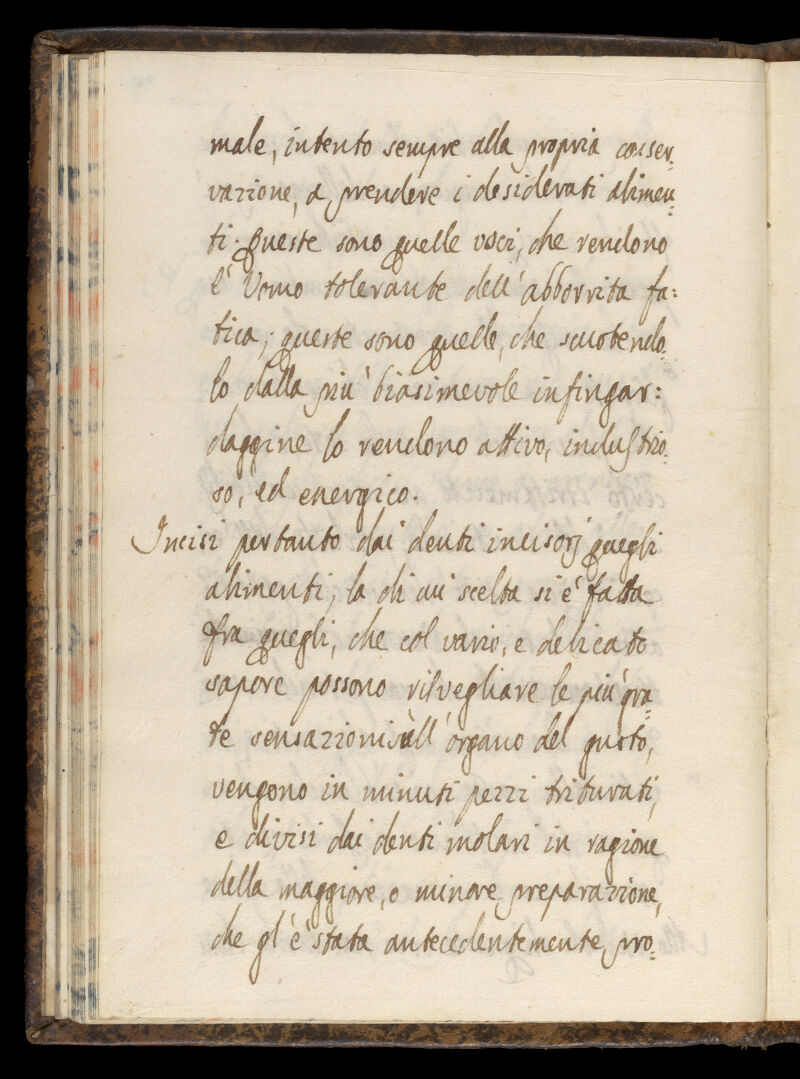 male, intento sempre alla propria conser-
vazione, a prendere i desiderati alimen=
ti. Queste sono quelle voci, che rendono
l'Uomo tolerante dell'abborrita fa=
tica; queste sono quelle, che scuotendo=
lo dalla più biasimevole infingar=
daggine lo rendono attivo, industrio=
so, ed energico.
Incisi pertanto dai denti incisorj quegli
alimenti, la di cui scelta si è fatta
fra quegli, che col vario, e delicato
sapore possono risvegliare le più gra=
te sensazioni sull'organo del gusto,
vengono in minuti pezzi triturati,
e divisi dai denti molari in ragione
della maggiore, o minore preparazione,
che gl'è stata antecedentemente pro=